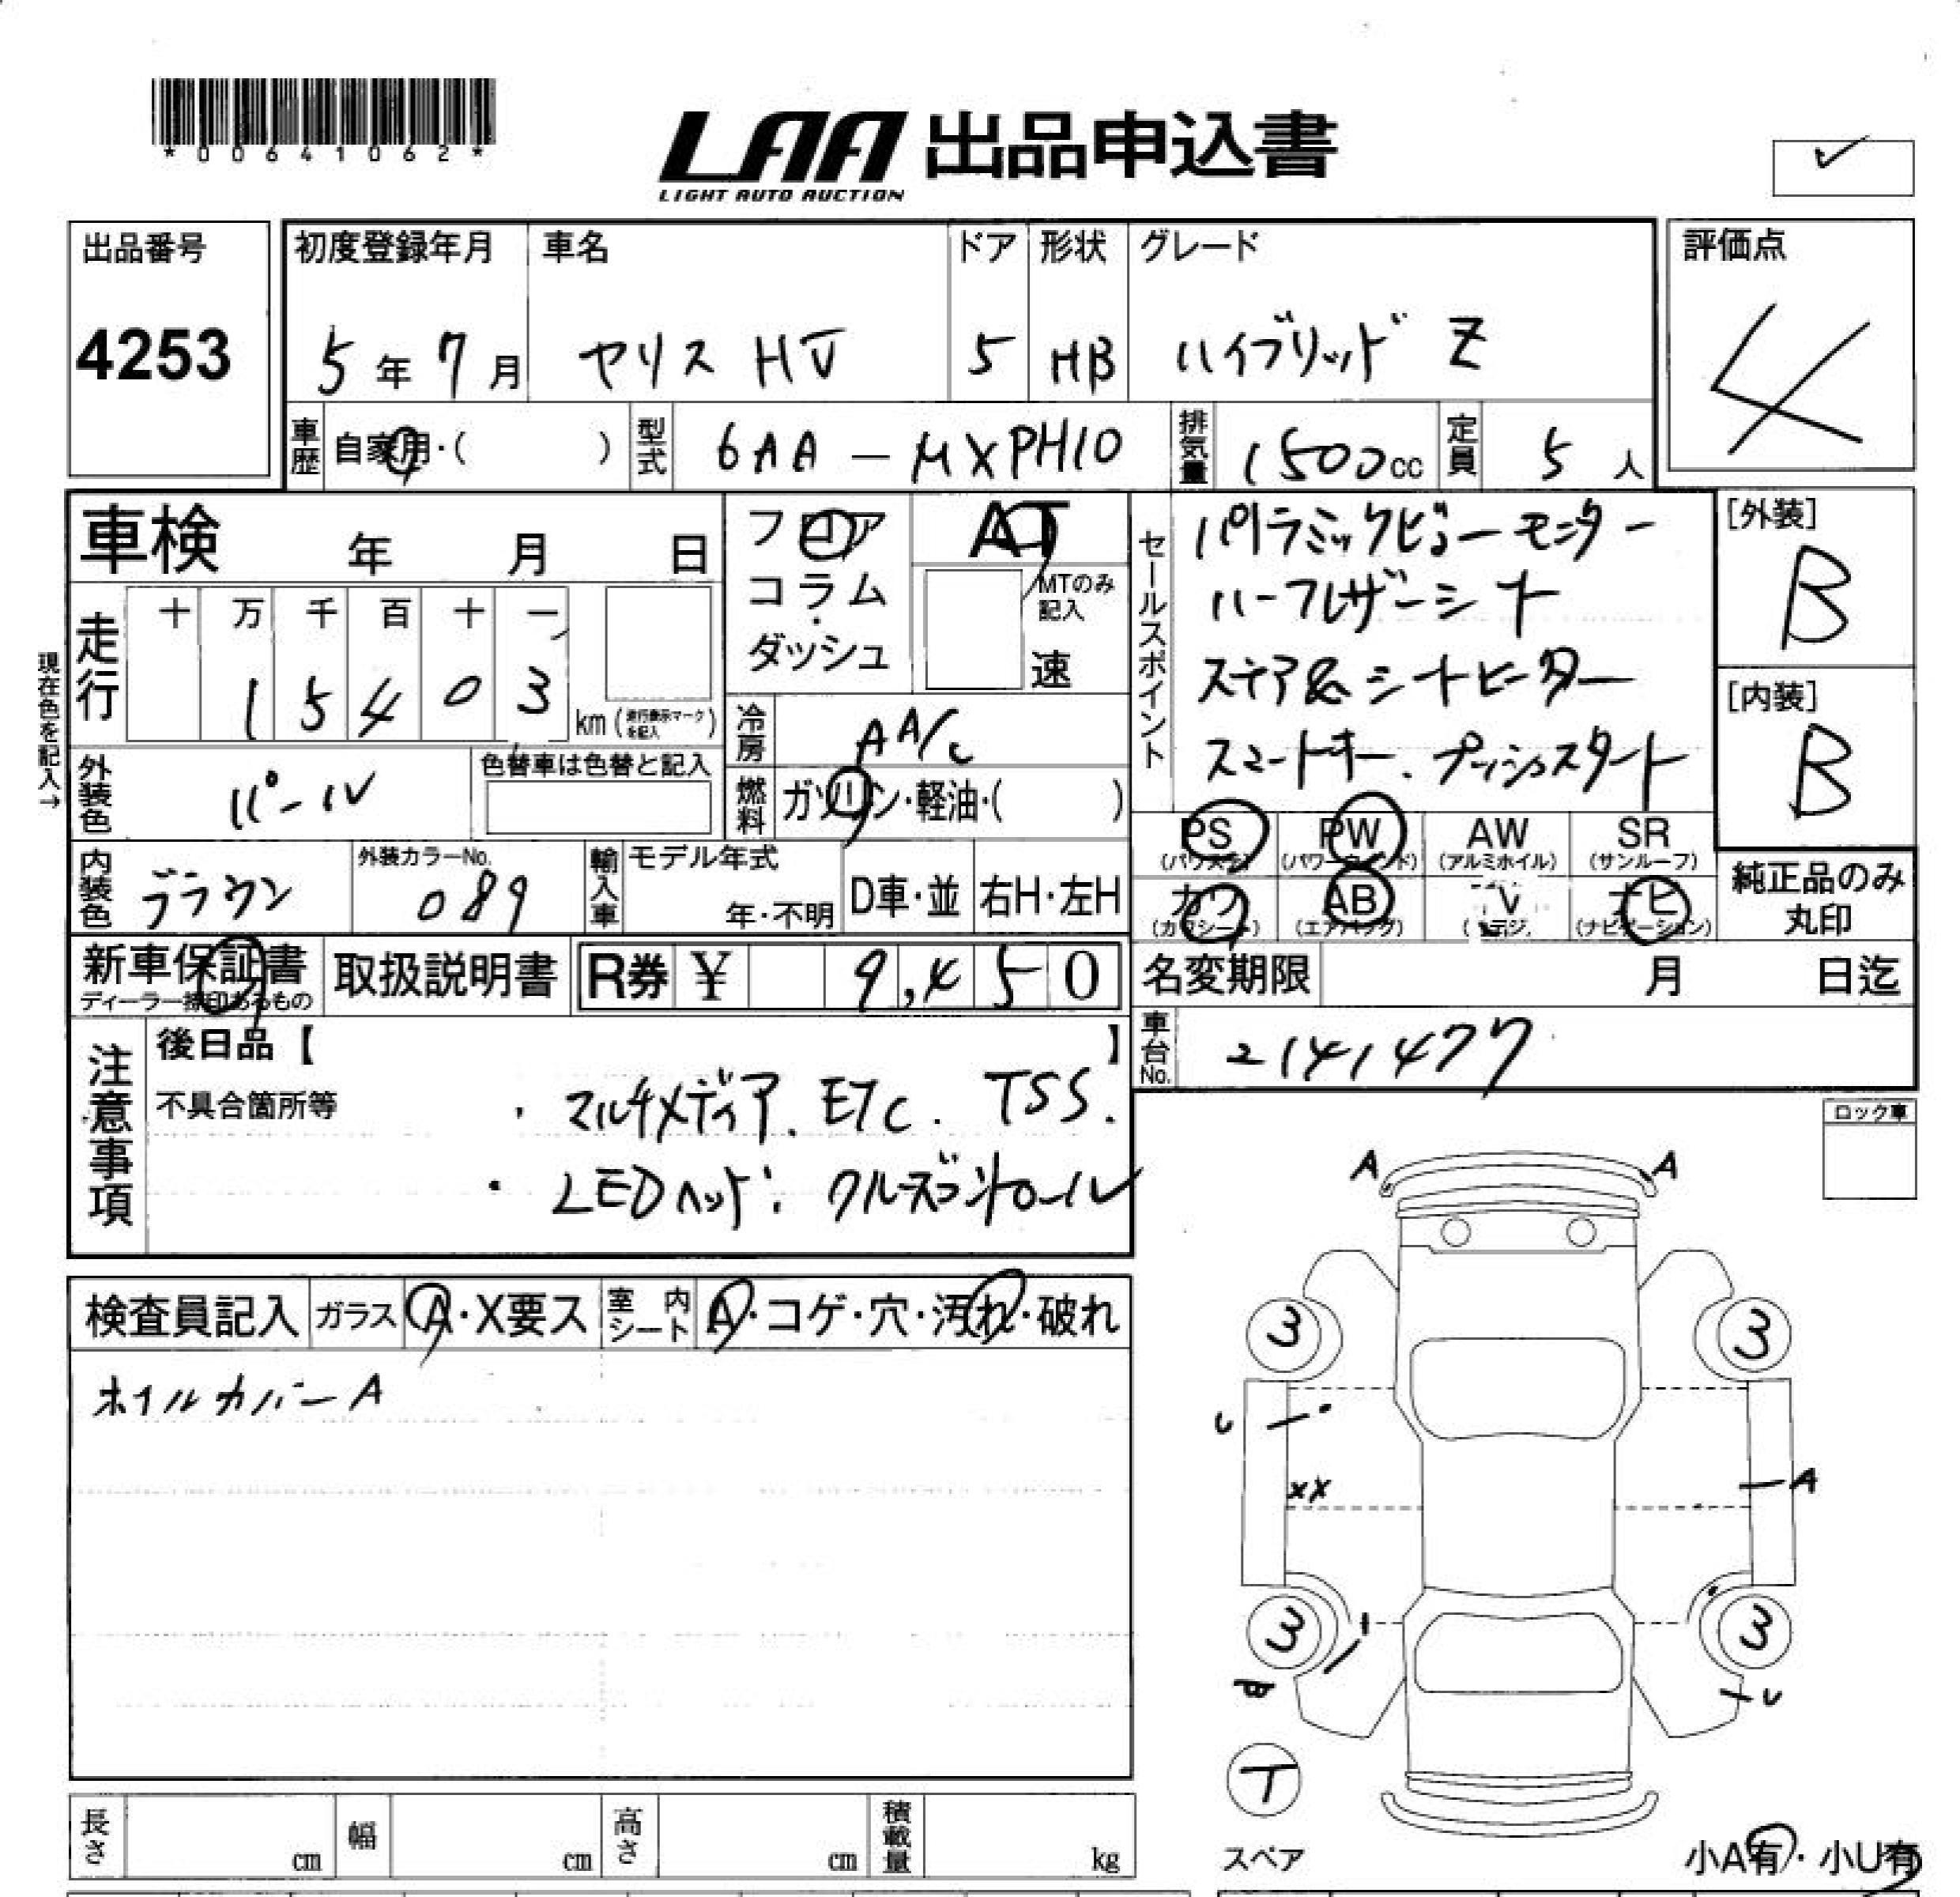 *00641062*
LAA 出品申込書
LIGHT AUTO AUCTION
✓
出品番号
4253
初度登録年月
5年7月
車名
ヤリス HV
ドア
5
形状
HB
グレード
ハイブリッド Z
評価点
4
車歴
自家用・( )
型式
6AA-MXPH10
排気量
1500cc
定員
5人
車検 年 月 日
フロア
コラム・
ダッシュ
AT
MTのみ
記入
速
セールスポイント
パノラミックビューモニター
ハーフレザーシート
ステア&シートヒーター
スマートキー、プッシュスタート
[外装]
B
[内装]
B
現在色を記入→
走行
十 万 千 百 十 一
1 5 4 0 3
km (走行表示マークを記入)
冷房
AA/C
外装色
パール
色替車は色替と記入
燃料
ガソリン・軽油・( )
PS
(パワステ)
PW
(パワーウインド)
AW
(アルミホイル)
SR
(サンルーフ)
カワ
(カワシート)
AB
(エアバッグ)
ナビ
(ナビゲーション)
純正品のみ
丸印
内装色
ブラウン
外装カラーNo.
089
輸入車
モデル年式
年・不明
D車・並
右H・左H
新車保証書
取扱説明書
R券 ¥ 9,450
名変期限 月 日迄
車台No.
2141477
注意事項
後日品【 】
不具合箇所等
・マルチメディア、ETC. TSS.
・LEDヘッド、クルーズコントロール
ロック車
検査員記入
ガラス
A・X要ス
室内シート
A・コゲ・穴・汚れ・破れ
ホイルカバーA
A A
3 3
U
XX
A
3 3
B
U
T
スペア
小A有・小U有
長さ cm
幅 cm
高さ cm
積載量 kg